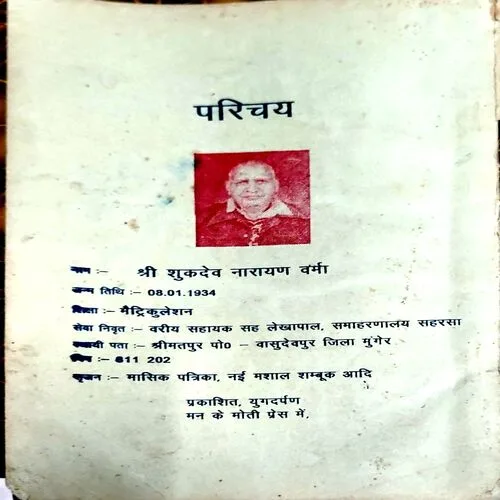 परिचय
नाम :– श्री शुकदेव नारायण वर्मा
जन्म तिथि :– 08.01.1934
शिक्षा :– मैट्रिकुलेशन
सेवा निवृत :– वरीय सहायक सह लेखापाल, समाहरणालय सहरसा
स्थायी पता :– श्रीमतपुर पो0 – वासुदेवपुर जिला मुंगेर
पिन :– 811 202
सृजन :– मासिक पत्रिका, नई मशाल शम्बूक आदि
प्रकाशित, युगदर्पण
मन के मोती प्रेस में,